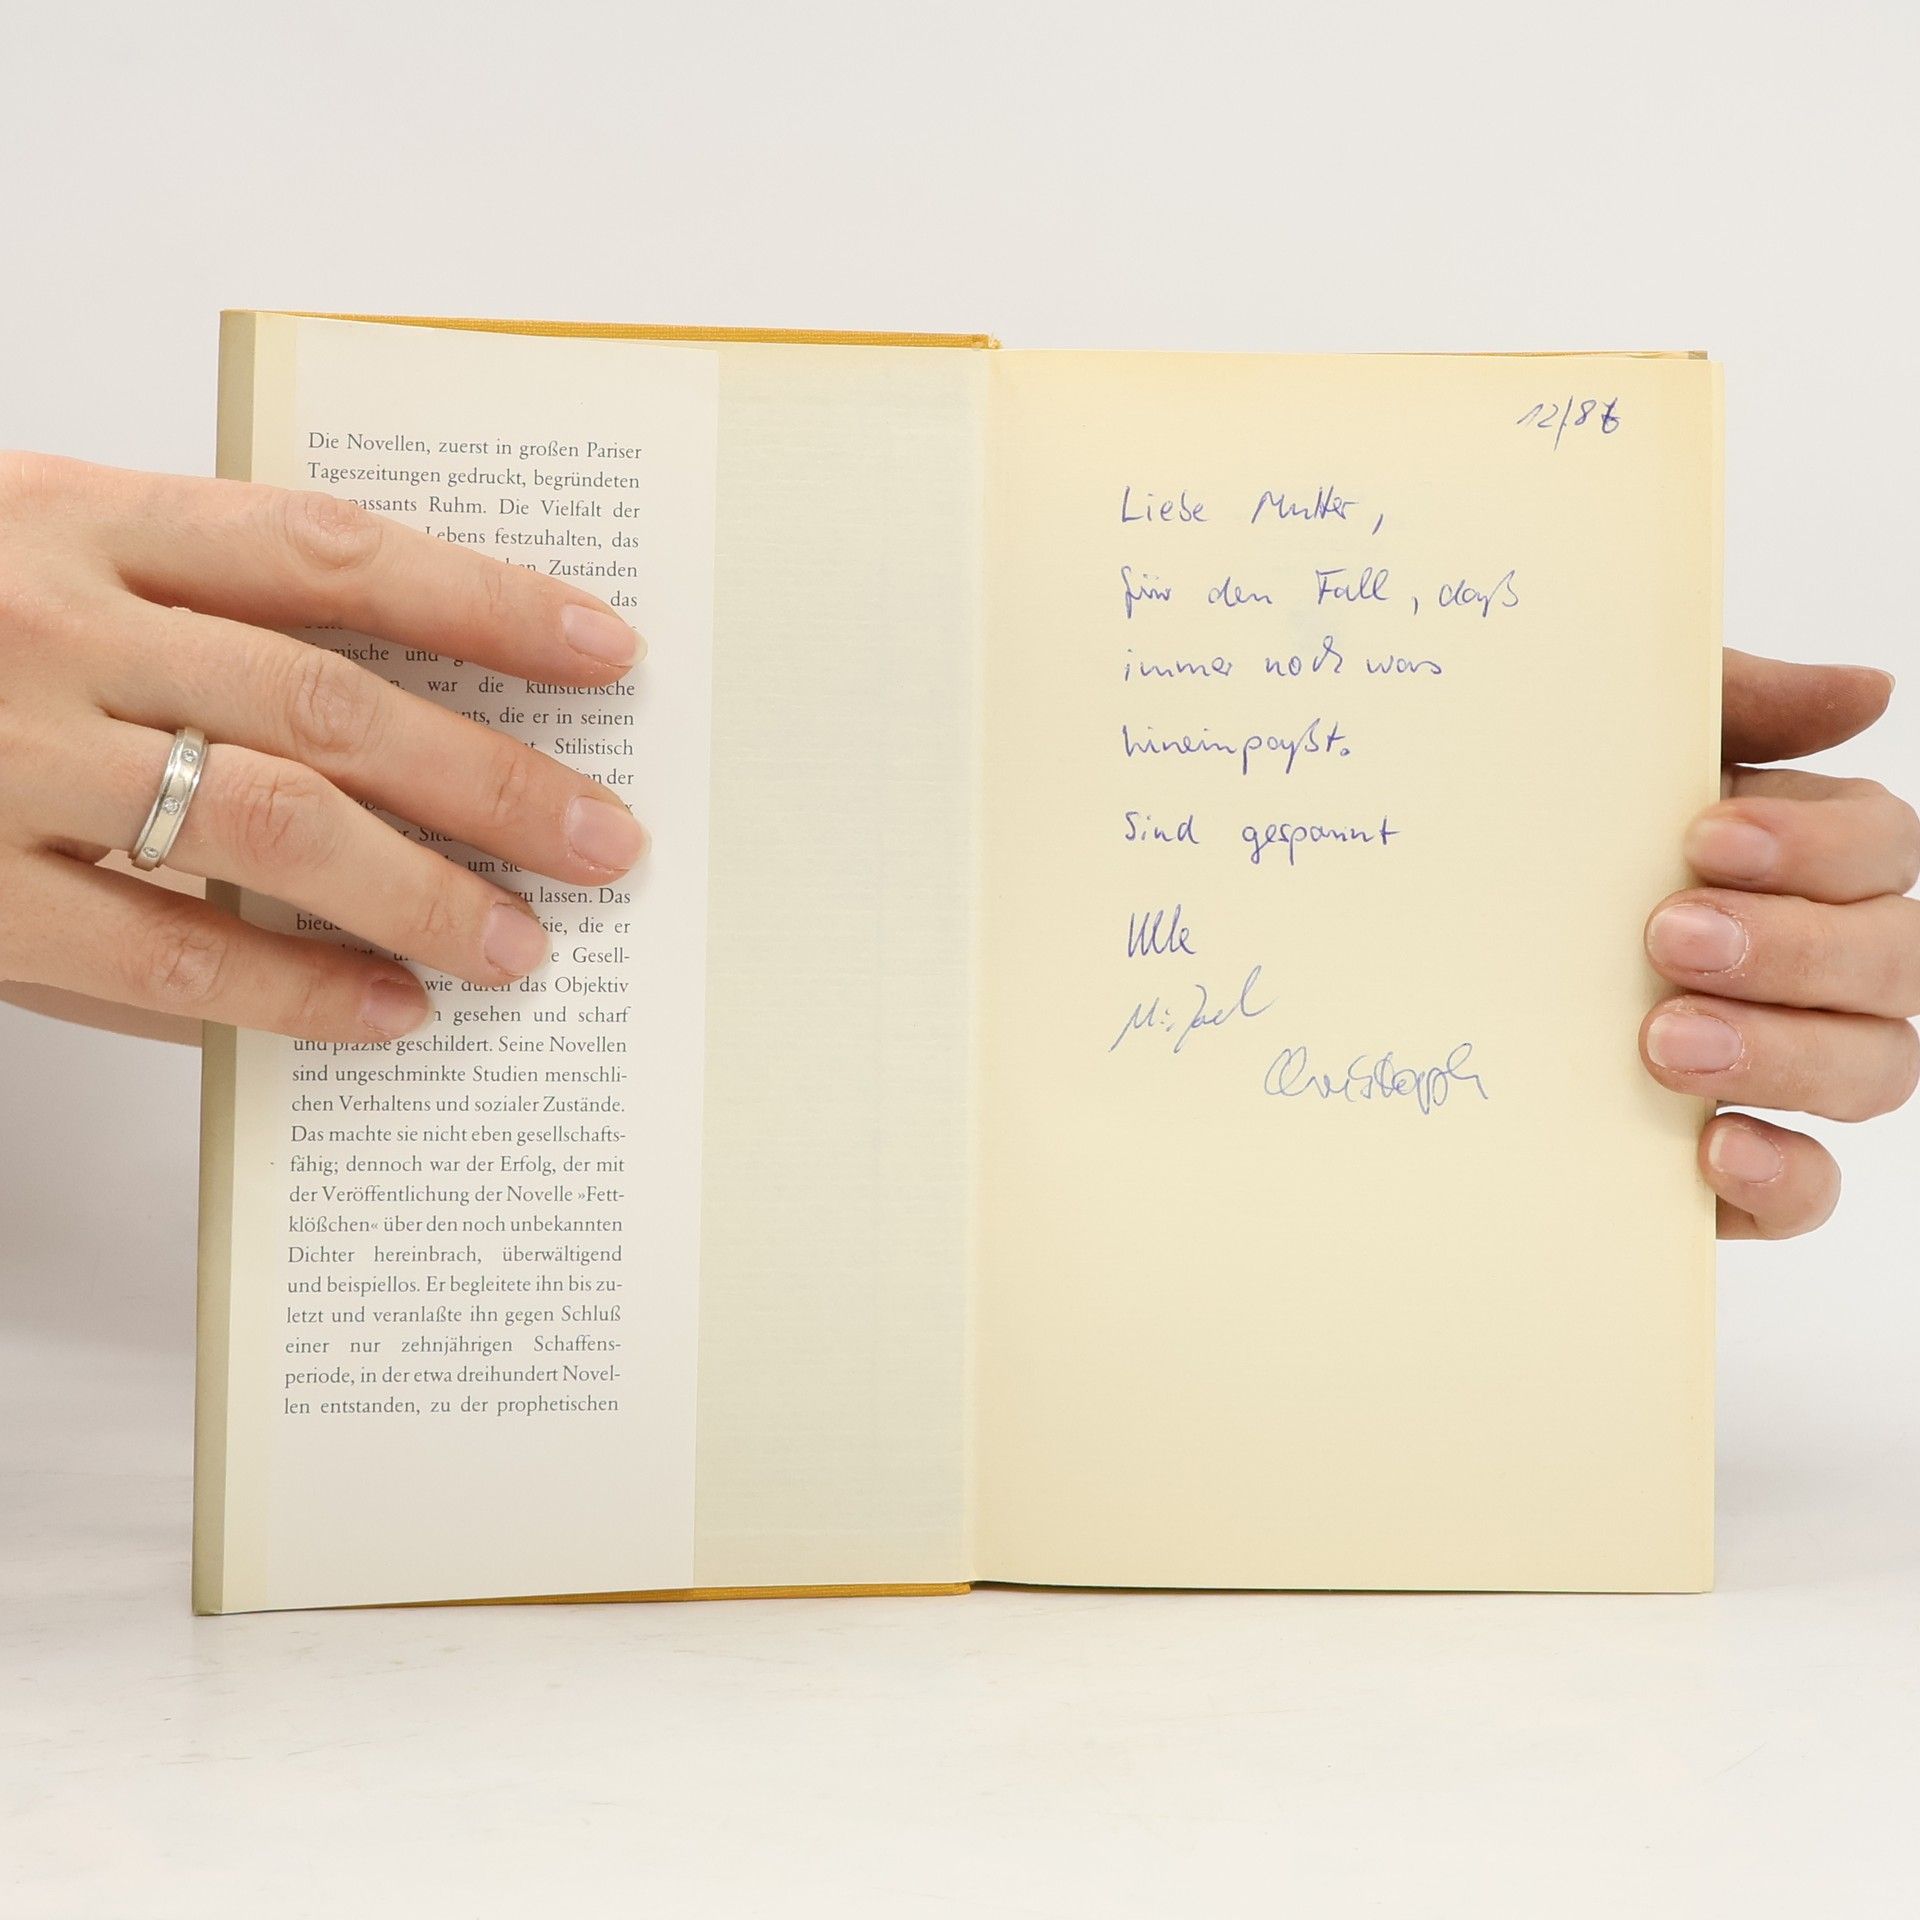 Die Novellen, zuerst in großen Pariser
Tageszeitungen gedruckt, begründeten
passants Ruhm. Die Vielfalt der
Lebens festzuhalten, das
Zuständen
das
mische und
war die künstlerische
die er in seinen
Stilistisch
der
um
zu lassen. Das
die er
Gesell-
wie durch das Objektiv
gesehen und scharf
und präzise geschildert. Seine Novellen
sind ungeschminkte Studien menschli-
chen Verhaltens und sozialer Zustände.
Das machte sie nicht eben gesellschafts-
fähig; dennoch war der Erfolg, der mit
der Veröffentlichung der Novelle »Fett-
klößchen« über den noch unbekannten
Dichter hereinbrach, überwältigend
und beispiellos. Er begleitete ihn bis zu-
letzt und veranlaßte ihn gegen Schluß
einer nur zehnjährigen Schaffens-
periode, in der etwa dreihundert Novel-
len entstanden, zu der prophetischen
12/86
Liebe Mutter,
für den Fall, daß
immer noch was
hineinpaßt.
Sind gespannt
Ulle
Michael
Christoph